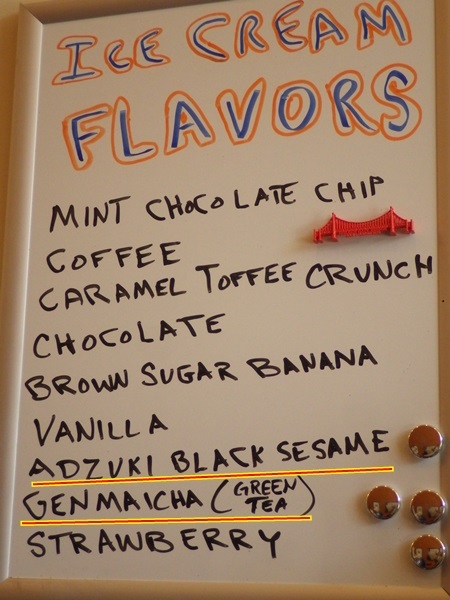 ICE CREAM
FLAVORS
MINT CHOCOLATE CHIP
COFFEE
CARAMEL TOFFEE CRUNCH
CHOCOLATE
BROWN SUGAR BANANA
VANILLA
ADZUKI BLACK SESAME
GENMAICHA (GREEN TEA)
STRAWBERRY